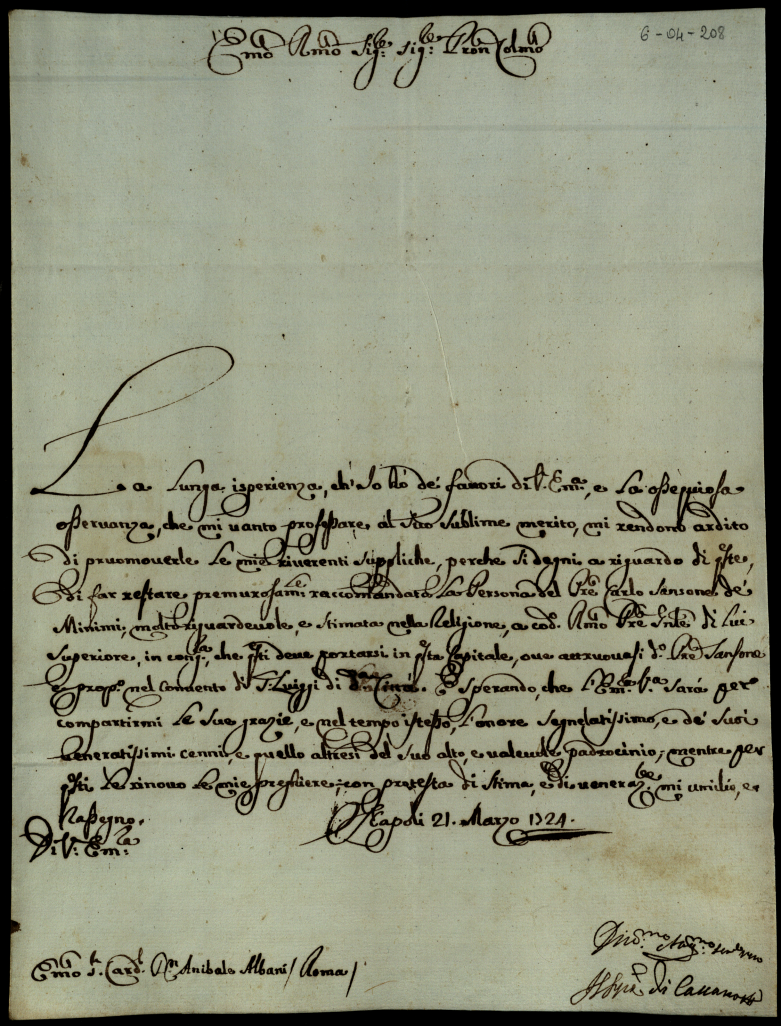 Emo Rmo Sig:re sig:re Pron Colmo
6-04-208
La lunga isperienza, ch'Io hò de' favori di V. Em:a, e La ossequiosa
osservanza, che mi vanto professare al Suo sublime merito, mi rendono ardito
di pruomoverle le mie riverenti suppliche, perche si degni a riguardo di q̃ste,
di far restare premurosam:te raccomandata La Persona del Pr̃e Carlo Sansone de'
Minimi, molto riguardevole, e stimata nella Religione, a cod:o Rmo Pr̃e Gñle di Lui
Superiore, in cong:ra, che q̃sti deve portarsi in q̃sta Capitale, ove attruovasi d:o Pr̃e Sansone
e prop:o nel convento di S. Luiggi di d:a Città. E sperando, che l'Em:a V:a sarà per
compartirmi le sue grazie, e nel tempo istesso, l'onore segnalatissimo, e de' suoi
veneratissimi cenni, e quello altresì del suo alto, e valevole padrocinio, mentre per
q̃sti le rinovo le mie preghiere; con protesta di stima, e di veneraz:ne mi umilio, e
rassegno.
Napoli 21. Marzo 1724.
Di V: Em:za
Emo S. Card:l Dn Anibale Albani / Roma /
Div:mo Obl:mo
di Cassano